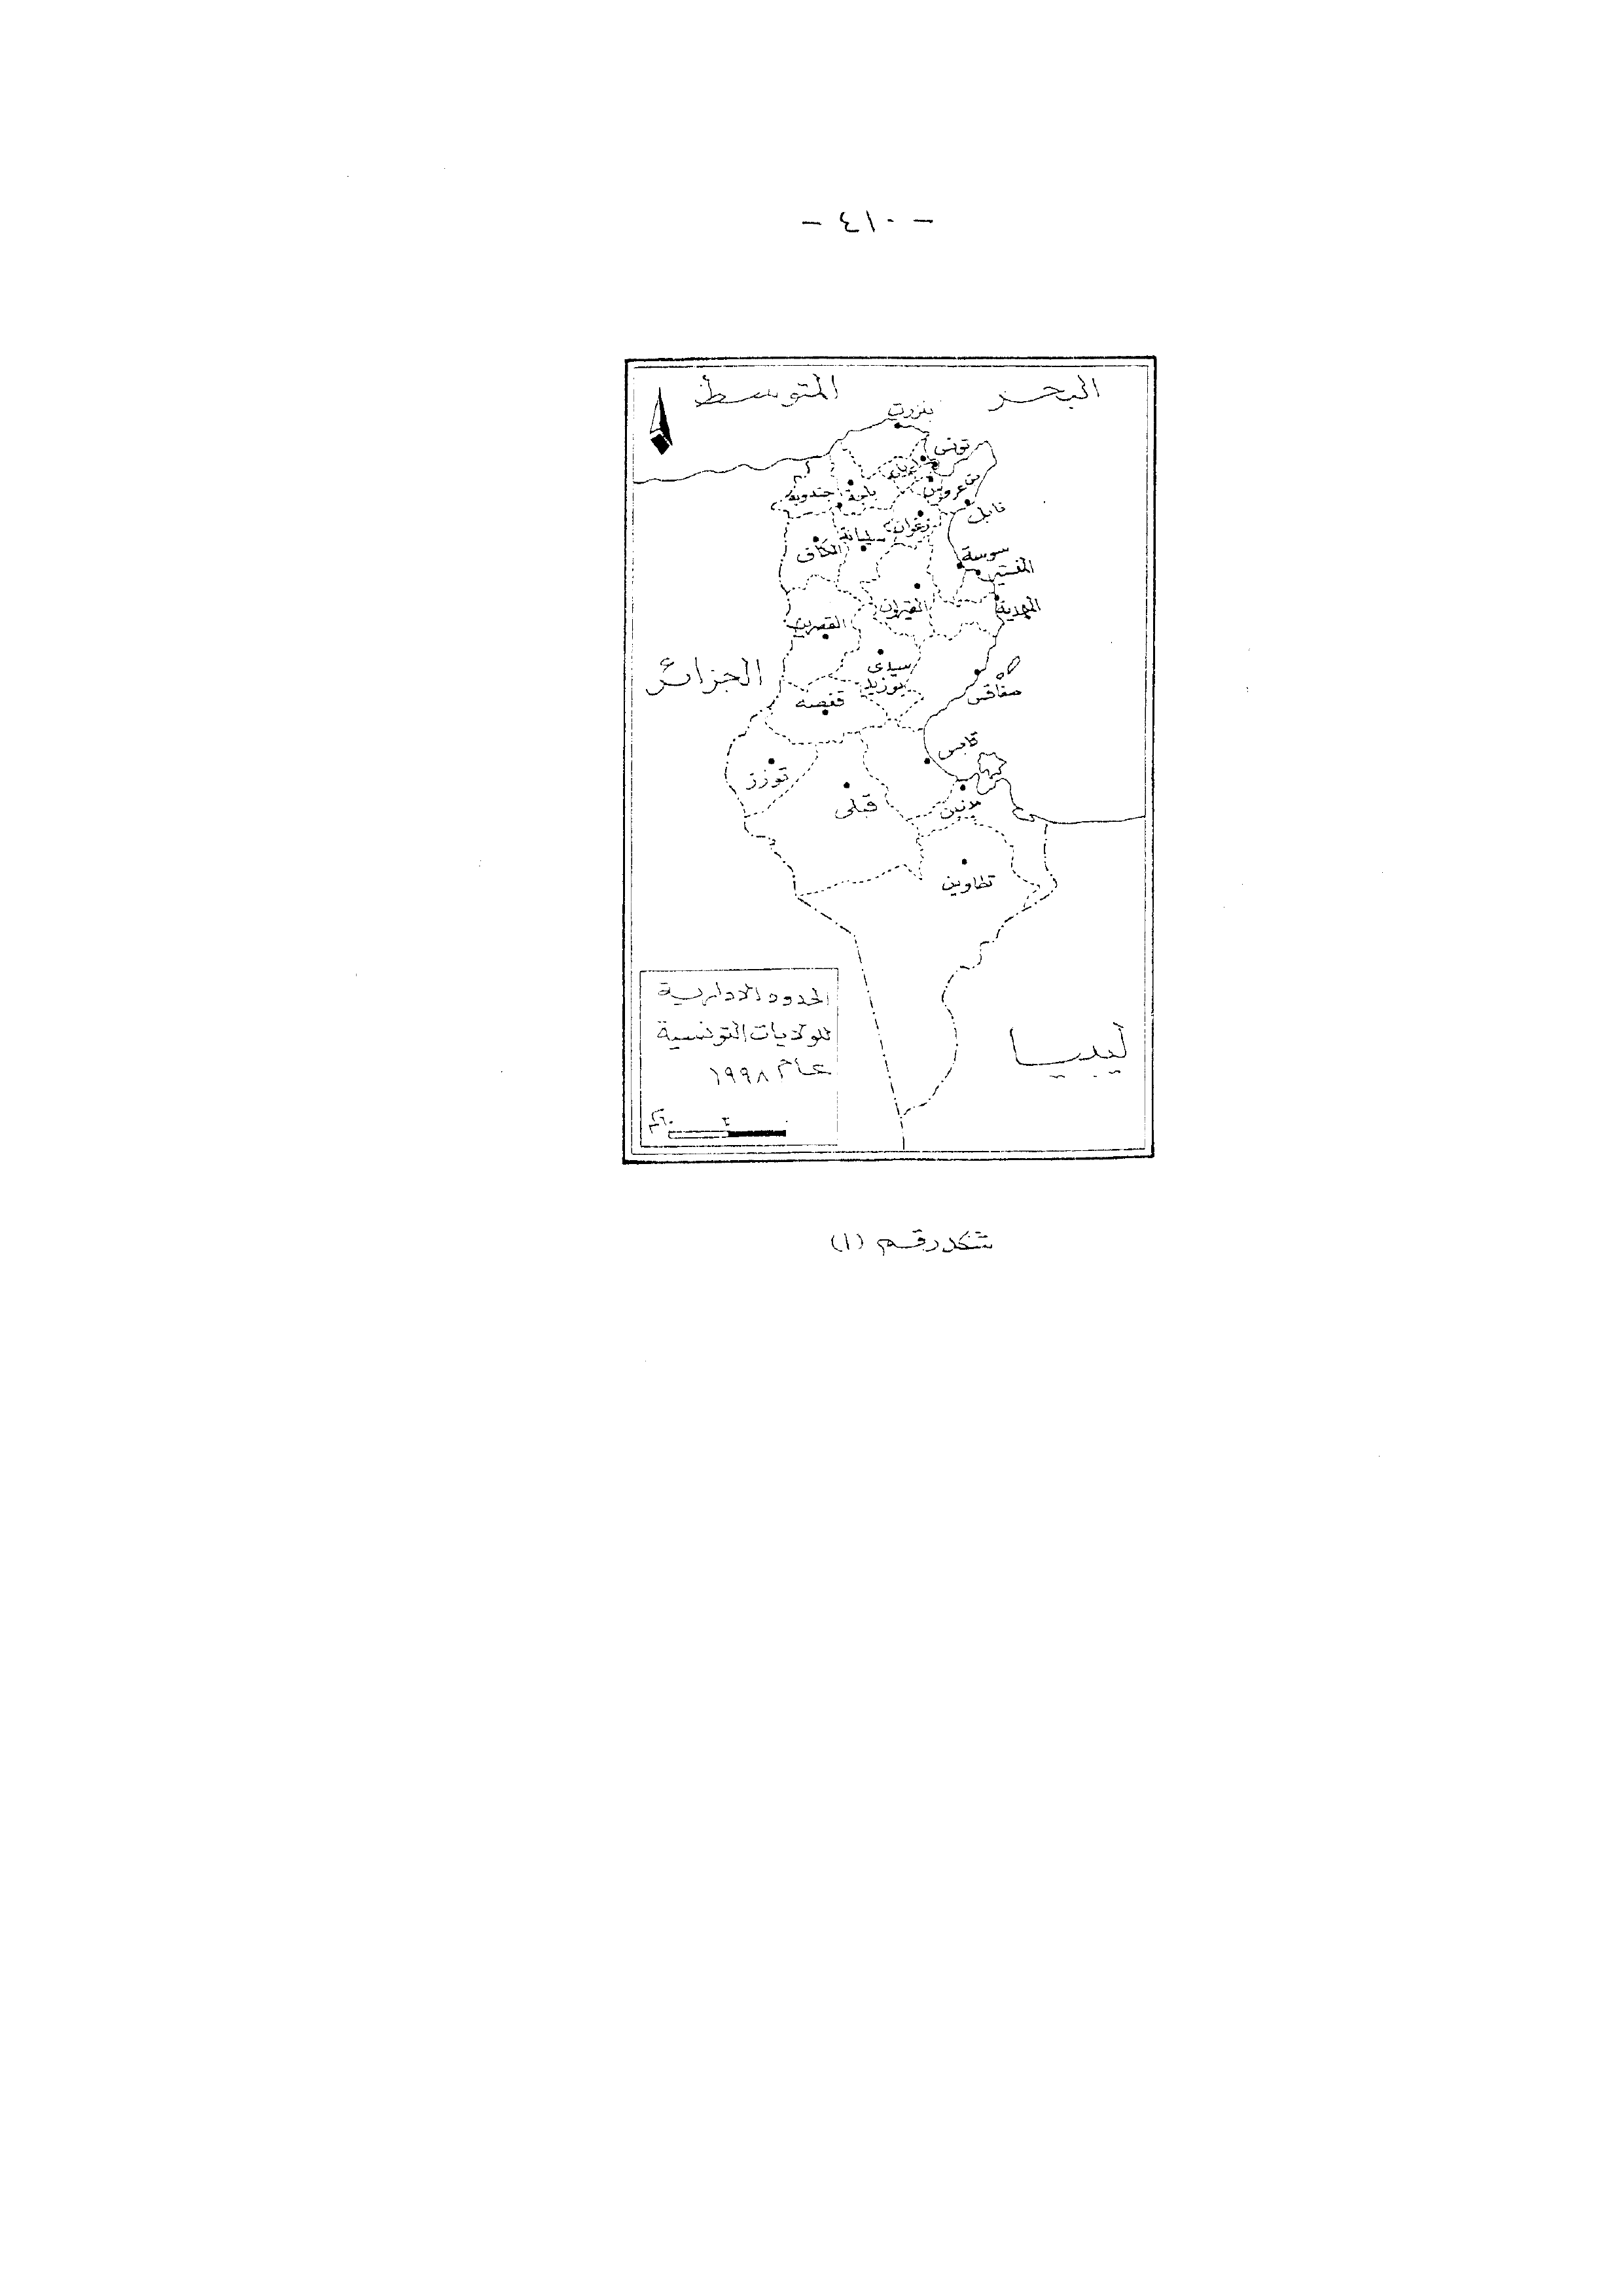 - ٤١٠ -
البحر المتوسط
بنزرت
تونس
اريانة
بن عروس
جندوبة
باجة
نابل
زغوان
سليانة
الكاف
سوسة
المنستير
المهدية
القيروان
القصرين
سيدى
بوزيد
صفاقس
الجزائر
قفصة
قابس
توزر
قبلى
مدنين
تطاوين
ليبيا
الحدود الادارية
للولايات التونسية
عام ١٩٩٨
شكل رقم (١)